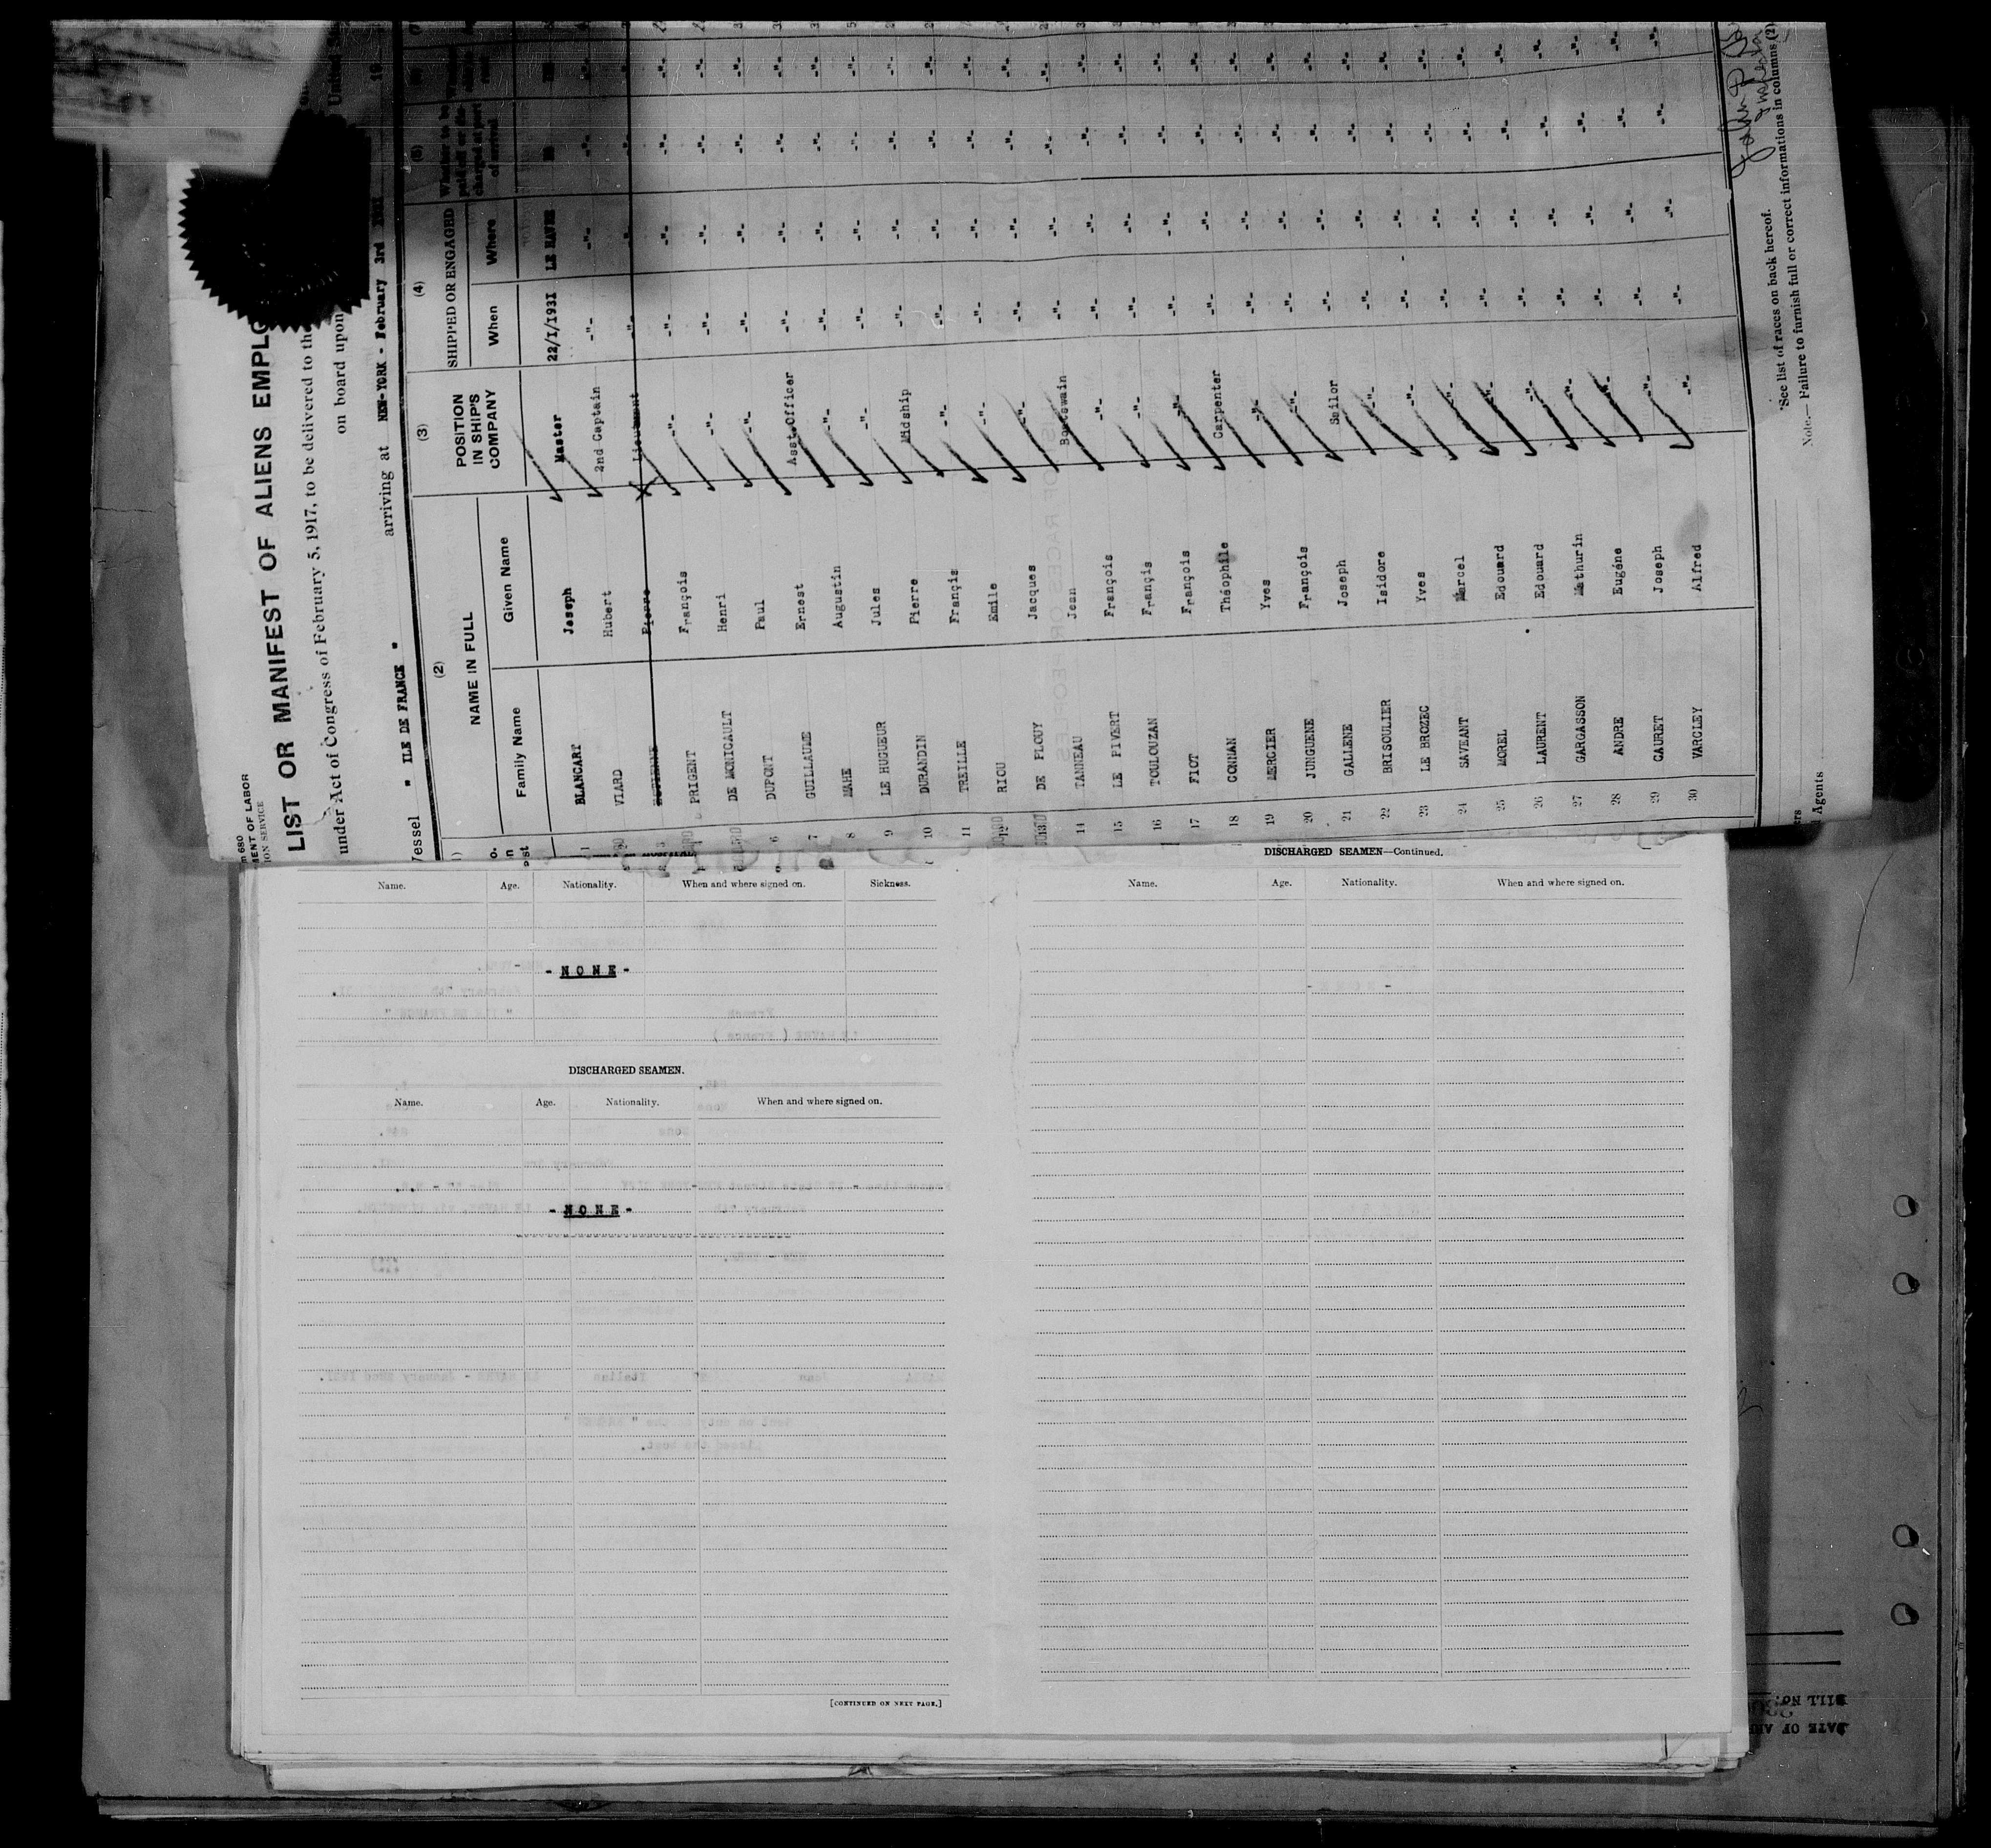 LIST OR MANIFEST OF ALIENS EMPLO
under Act of Congress of February 5, 1917, to be delivered to the
on board upon
Vessel " ILE DE FRANCE " arriving at NEW-YORK - February 3rd
(2) (3) (4) (5)
NAME IN FULL POSITION IN SHIP'S COMPANY SHIPPED OR ENGAGED
Family Name Given Name When Where
1 BLANCART Joseph Master 22/I/193I LE HAVRE
2 VIARD Hubert 2nd Captain -"- -"- -"- -"-
Pierre Lieutenant -"- -"- -"-
PRIGENT François -"- -"- -"- -"- -"-
DE MONICAULT Henri -"- -"- -"- -"- -"-
6 DUPONT Paul -"- -"- -"- -"- -"-
7 GUILLAUME Ernest Asst.Officer -"- -"- -"- -"-
8 MAHE Augustin -"- -"- -"- -"- -"-
9 LE HUGUEUR Jules -"- -"- -"- -"- -"-
10 DURANDIN Pierre Midship -"- -"- -"- -"-
11 TREILLE Françis -"- -"- -"- -"- -"-
12 RIOU Emile -"- -"- -"- -"- -"-
13 DE PLOUY Jacques -"- -"- -"- -"- -"-
14 TANNEAU Jean Boatswain -"- -"- -"- -"-
15 LE PIVERT François -"- -"- -"- -"- -"-
16 TOULOUZAN Françis -"- -"- -"- -"- -"-
17 FICT François -"- -"- -"- -"- -"-
18 GONNAN Théophile Carpenter -"- -"- -"- -"-
19 MERCIER Yves -"- -"- -"- -"- -"-
20 JUNGUENE François -"- -"- -"- -"- -"-
21 GALLENE Joseph Sailor -"- -"- -"- -"-
22 BRISOULIER Isidore -"- -"- -"- -"- -"-
23 LE BROZEC Yves -"- -"- -"- -"- -"-
24 SAVEANT Marcel -"- -"- -"- -"- -"-
25 MOREL Edouard -"- -"- -"- -"- -"-
26 LAURENT Edouard -"- -"- -"- -"- -"-
27 GARGASSON Mathurin -"- -"- -"- -"- -"-
28 ANDRE Eugéne -"- -"- -"- -"- -"-
29 CAURET Joseph -"- -"- -"- -"- -"-
30 VARCLEY Alfred -"- -"- -"-
*See list of races on back hereof.
Note.— Failure to furnish full or correct informations in columns (2)
Agents
Name. Age. Nationality. When and where signed on. Sickness.
- N O N E -
DISCHARGED SEAMEN.
Name. Age. Nationality. When and where signed on.
- N O N E -
[CONTINUED ON NEXT PAGE.]
DISCHARGED SEAMEN—Continued.
Name. Age. Nationality. When and where signed on.
BILL NO.